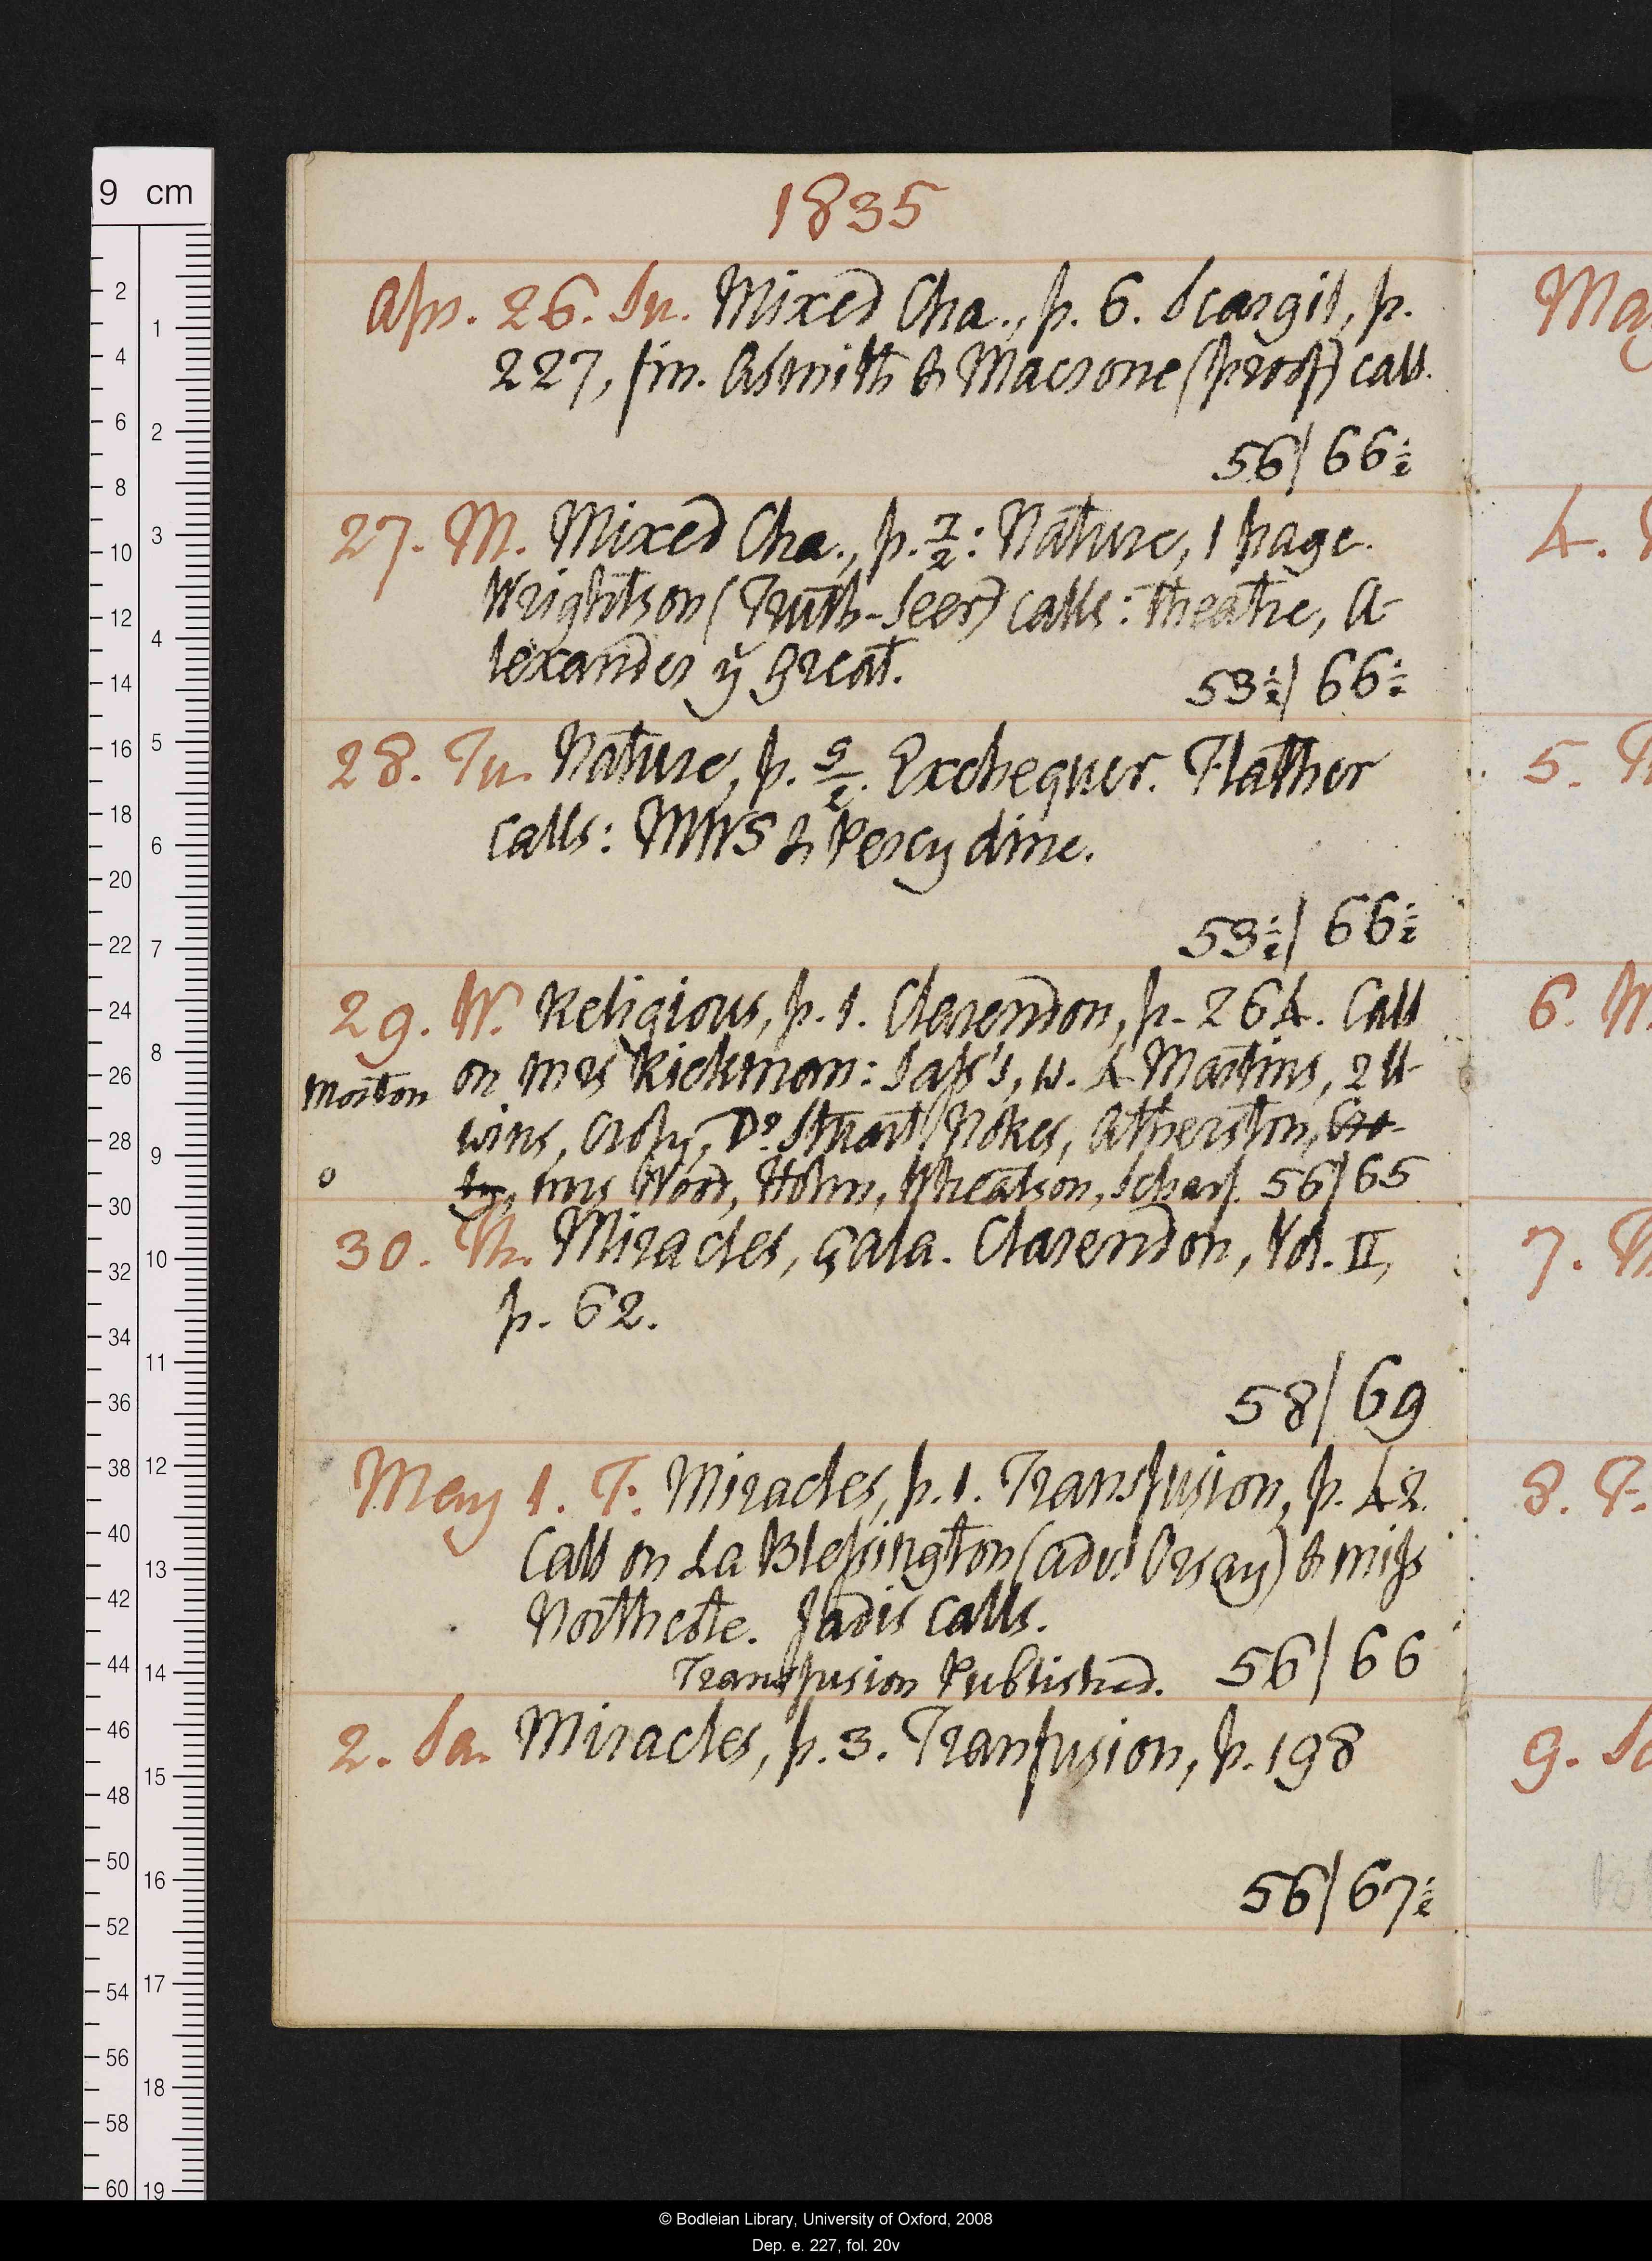 1835
Apr. 26. Su. Mixed Cha., p. 6. Scargil, p.
227, fin. Asmith & Macrone (proof) call.
56/ 66½
27. M. Mixed Cha., p. 7/2: Nature, 1 page.
Wrightson (Truth-Seer) calls: theatre, A-
lexander ye great.
53½/ 66½
28. Tu. Nature, p. 5/2. Exchequer. Flather
calls: MWS & Percy dine.
53½/ 66½
29. W. Religious, p. 1. Clarendon, p. 264. Call
Morton on mrs Rickman: Sass's, w. 4 Martins, 2 U-
wins, Crosy, Dr. Stuart, Nokes, Atherston, Cro-
sy, mrs Word, Holm, Wheatson, Scharf. 56/65
30. Th. Miracles, gala. Clarendon, Vol. II,
p. 62.
58/ 69
May 1. F. Miracles, p. 1. Transfusion, p. 42.
Call on La Blessington (adv. Orsay) & miss
Northcote. Jadis calls.
Transfusion Published. 56/ 66
2. Sa. Miracles, p. 3. Tranfusion, p. 198
56/ 67½
May
4.
5.
6. W
7.
8. F.
9. Sa
9 cm
© Bodleian Library, University of Oxford, 2008
Dep. e. 227, fol. 20v